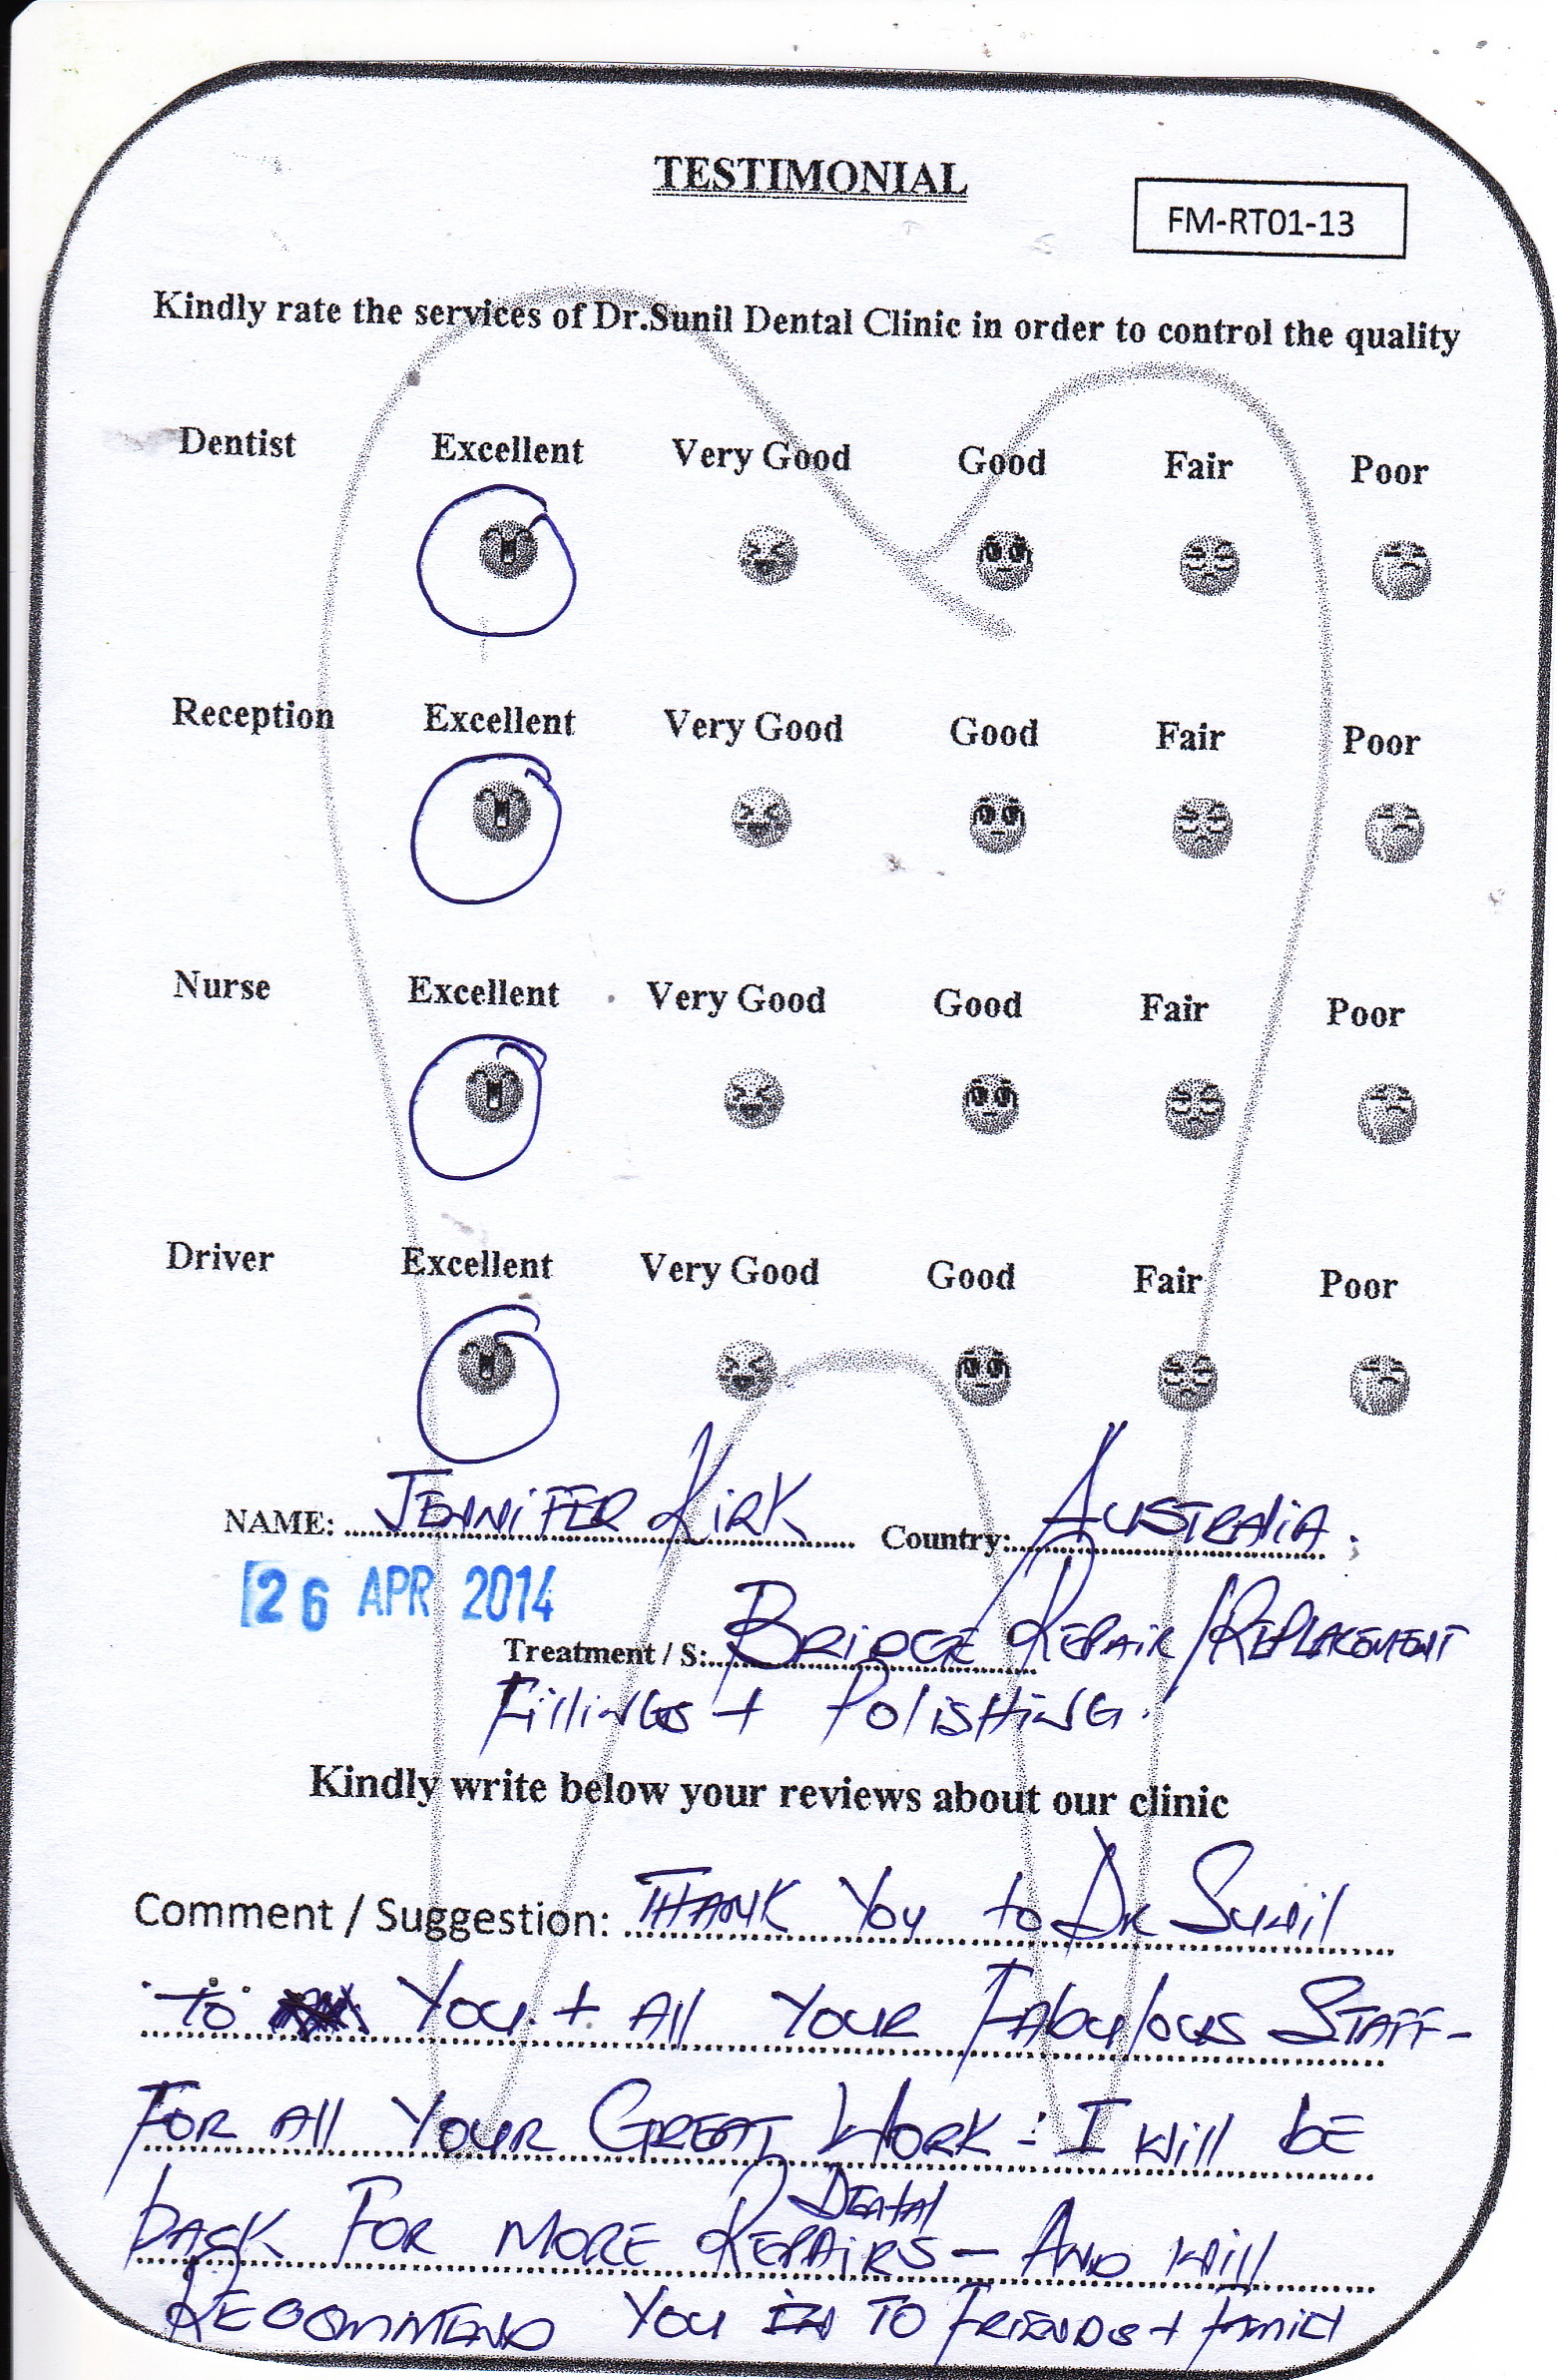 TESTIMONIAL
FM-RT01-13
Kindly rate the services of Dr.Sunil Dental Clinic in order to control the quality
Dentist Excellent Very Good Good Fair Poor
Reception Excellent Very Good Good Fair Poor
Nurse Excellent Very Good Good Fair Poor
Driver Excellent Very Good Good Fair Poor
NAME: JENNIFER KIRK Country: AUSTRALIA.
26 APR 2014
Treatment / S: BRIDGE REPAIR/REPLACEMENT
FillINGS + POlISHING.
Kindly write below your reviews about our clinic
Comment / Suggestion: THANK You to DR Sunil
To You + All YOUR FAbulous STAFF-
FOR All YOUR GREAT WORK - I Will bE
bACK FOR MORE DENtAl REPAIRS - AND Will
RECOMMEND YOU TO FRIENDS + FAMILY